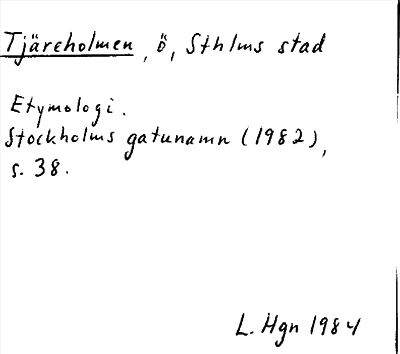 Tjäreholmen, ö, Sthlms stad
Etymologi.
Stockholms gatunamn (1982),
s. 38.
L. Hgn 1984